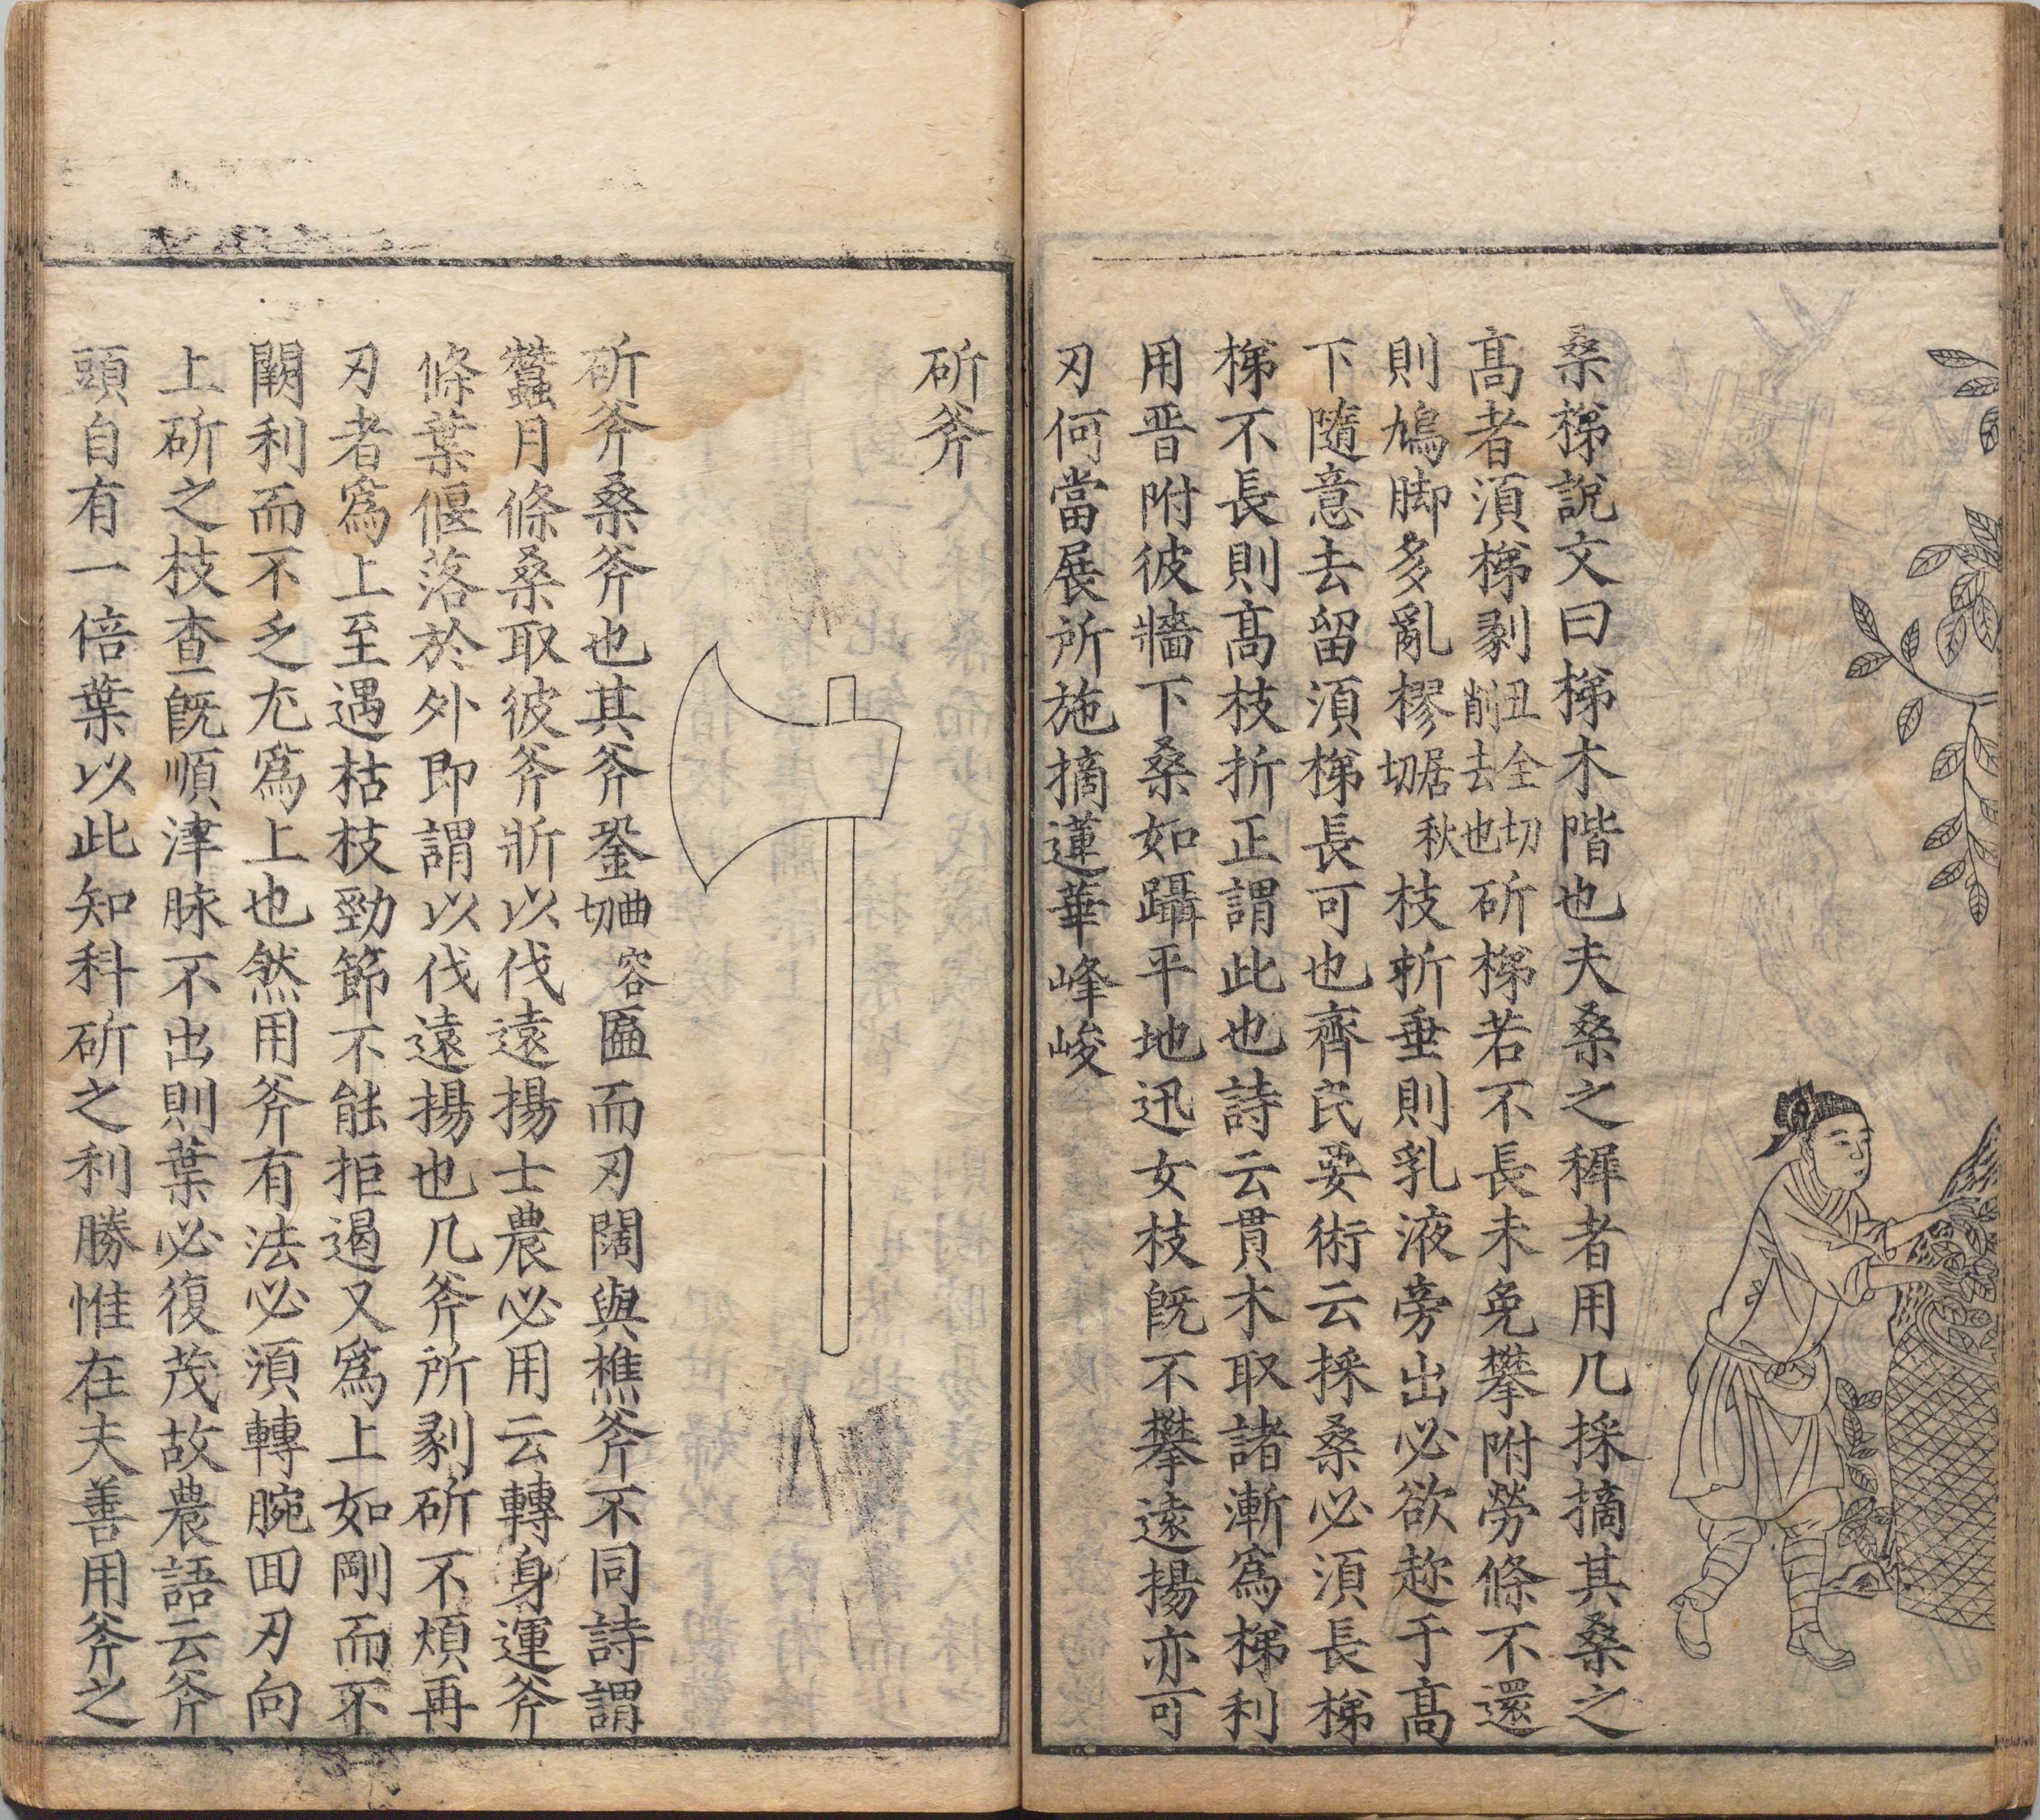 桑梯說文曰梯木階也夫桑之穉者用几採摘其桑之
高者須梯剥丑全切削去也斫梯若不長未免攀附勞條不還
則鳩脚多亂樛居秋切枝折垂則乳液旁出必欲趂于高
下隨意去留須梯長可也齊民要術云採桑必須長梯
梯不長則高枝折正謂此也詩云貫木取諸漸爲梯利
用晋附彼牆下桑如躡平地迅女枝旣不攀遠揚亦可
刃何當展所施摘蓮華峰峻
斫斧
斫斧桑斧也其斧銎曲容切匾而刃闊與樵斧不同詩謂
蠶月條桑取彼斧斨以伐遠揚士農必用云轉身運斧
條葉偃落於外即謂以伐遠揚也凡斧所剥斫不煩再
刃者爲上至遇枯枝勁節不能拒遏又爲上如剛而不
闕利而不乏尤爲上也然用斧有法必須轉腕回刃向
上斫之枝查旣順津脉不出則葉必復茂故農語云斧
頭自有一倍葉以此知科斫之利勝惟在夫善用斧之